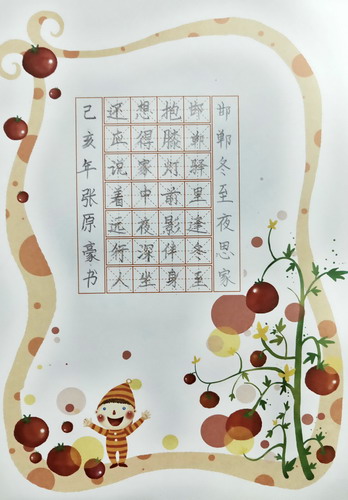 邯郸冬至夜思家
邯郸驿里逢冬至
抱膝灯前影伴身
想得家中夜深坐
还应说着远行人
己亥年张原豪书